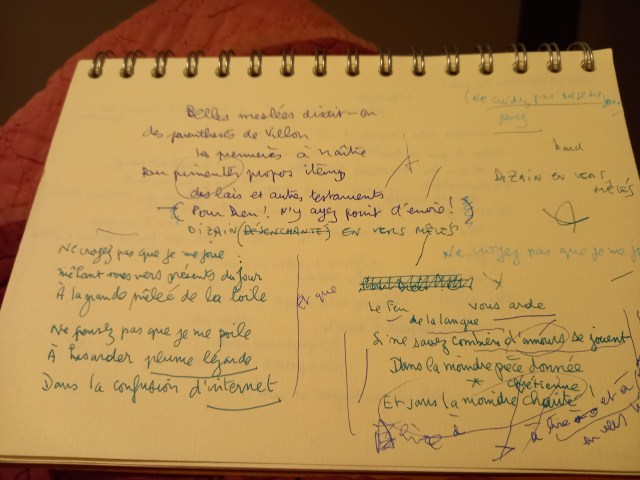 Belles meslées disait-on
des parenthèses de Villon
les premières à naître
pimentés propos items
des lais et autres testaments
(Pour Dieu! N'y ayez point d'envie!)
DIZAIN (DÉSENCHANTÉ) EN VERS MÊLÉS
Ne croyez pas que je me joue
mêlant mes vers présents du jour
À la grande mêlée de la toile
Ne pensez pas que je me poile
À hasarder plume légarde
Dans la confusion d'internet
et que
pas
DIZAIN EN VERS
MÊLÉS
Ne croyez pas que je me jo
Le Feu vous arde
de la langue
Si ne savez combien d'amours se jouent
Dans la moindre pièce donnée
* chrétienne
Et sans la moindre charité!
à
à et à
en vers